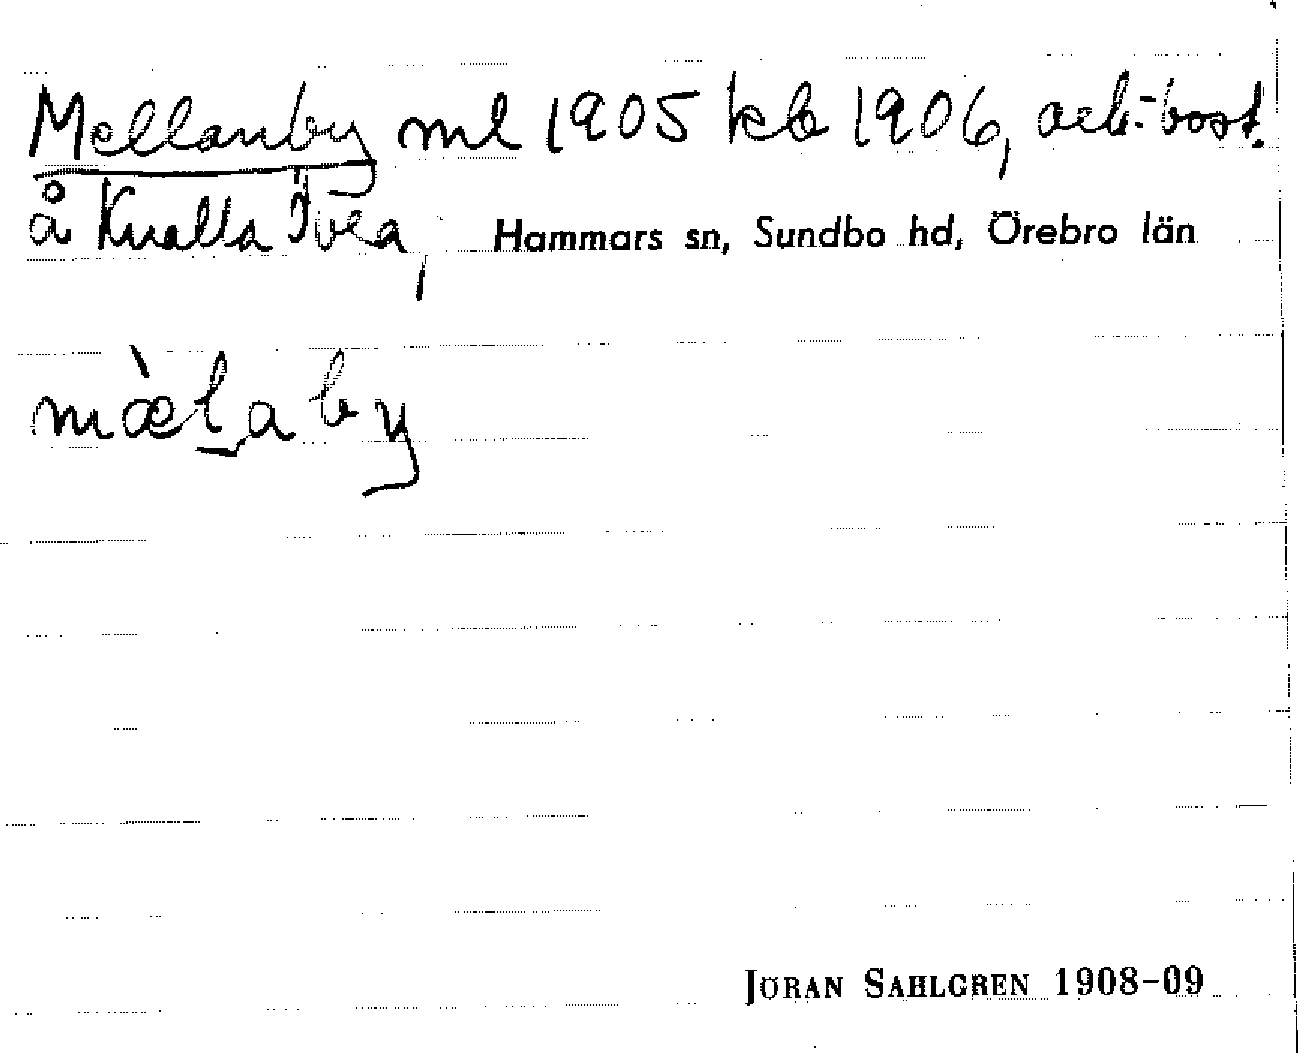 Mellanby ml 1905 kb 1906, arb.-bost.
å Knalla Tvea, Hammars sn, Sundbo hd, Örebro län
mæ̀laby
JÖRAN SAHLGREN 1908-09